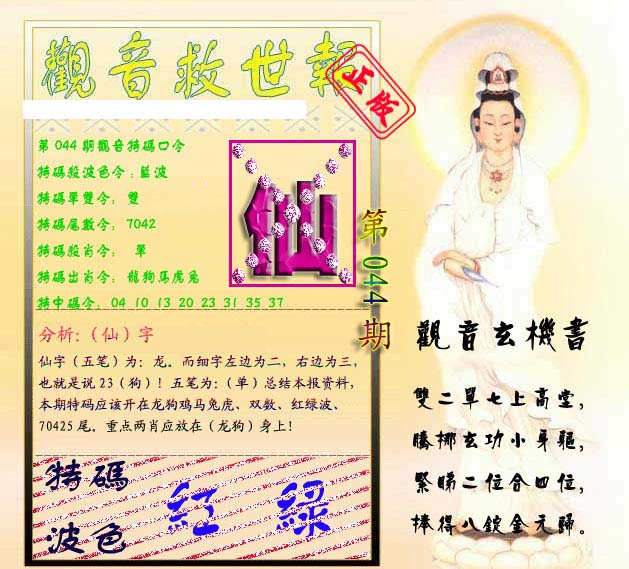 觀音救世報
正版
第044期觀音特碼口令
特碼殺波色令:藍波
特碼單雙令: 雙
特碼尾數令: 7042
特碼殺肖令: 單
特碼出肖令: 龍狗馬虎兔
特中碼令: 04 10 13 20 23 31 35 37
仙
第044期
分析:(仙)字
仙字(五笔)为:龙。而细字左边为二,右边为三,
也就是说23(狗)!五笔为:(单)总结本报资料,
本期特码应该开在龙狗鸡马兔虎、双数、红绿波、
70425尾。重点两肖应放在(龙狗)身上!
特碼
波色
紅 綠
觀音玄機書
雙二單七上高堂,
騰挪玄功小身軀,
緊睇二位合四位,
捧得八錠金元歸。